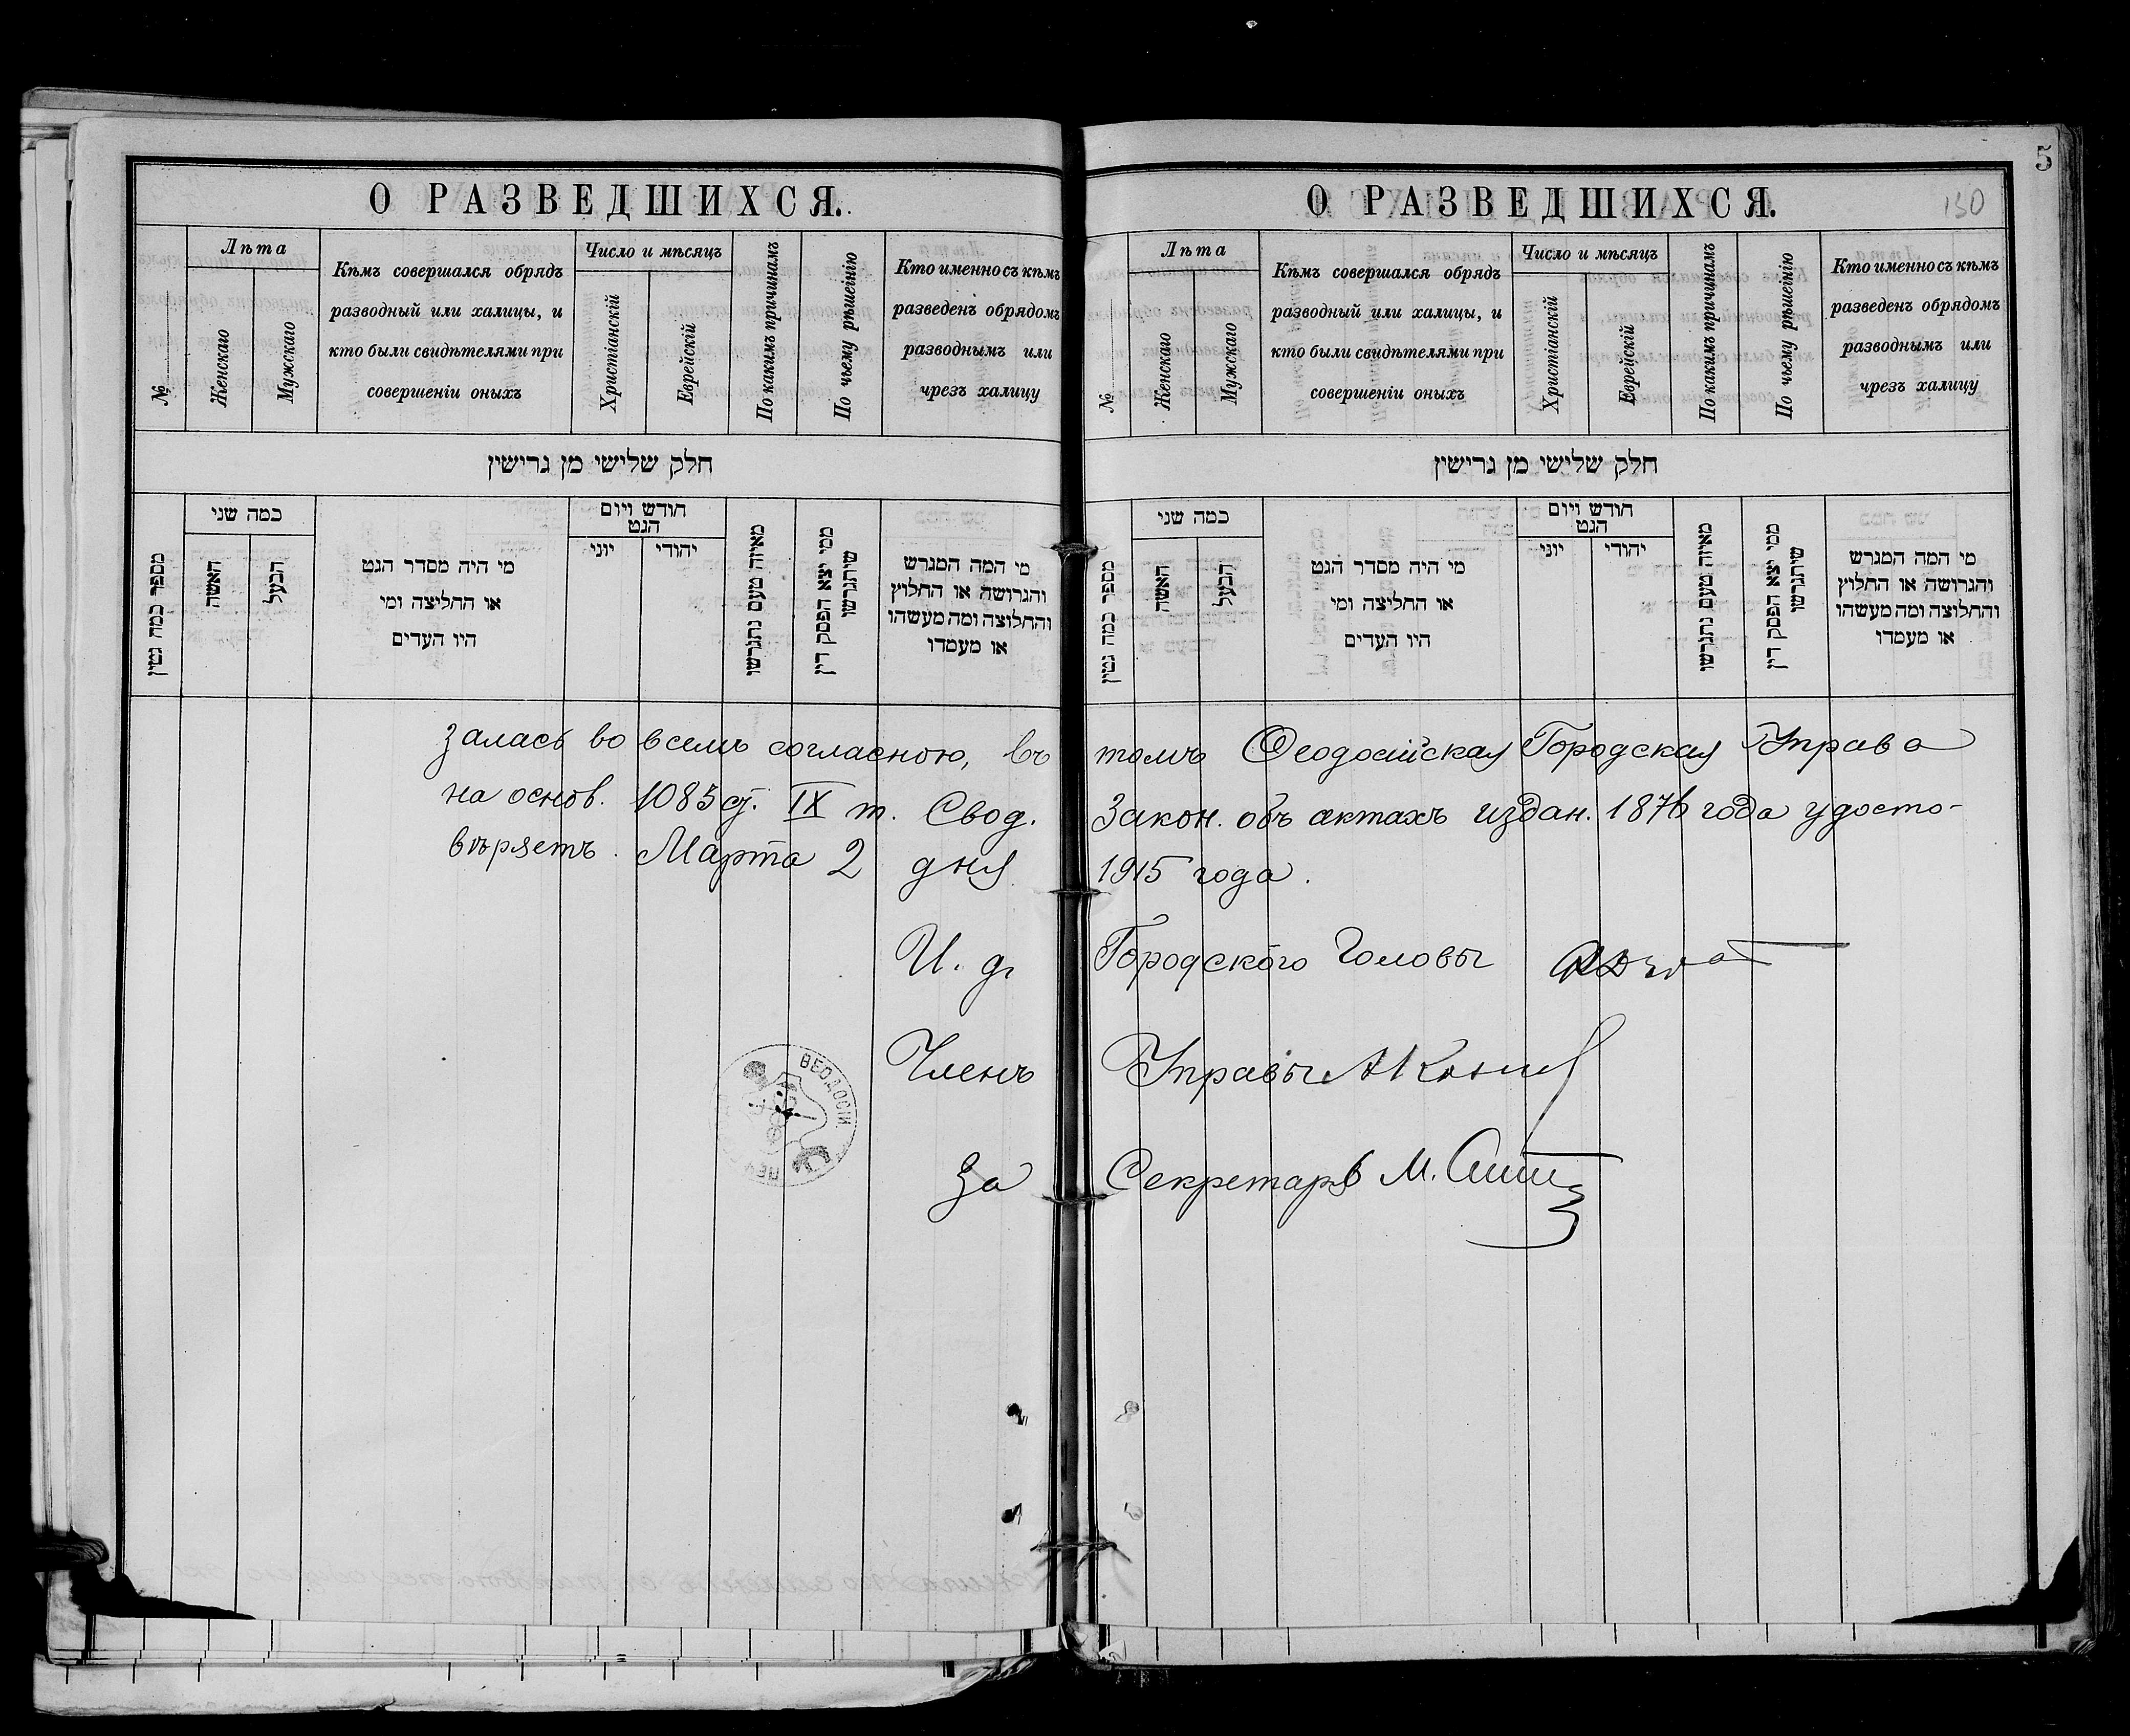 О РАЗВЕДШИХСЯ.
№
Лѣта
Женскаго
Мужскаго
Кѣмъ совершался обрядъ
разводный или халицы, и
кто были свидѣтелями при
совершеніи оныхъ
Число и мѣсяцъ
Христіанскій
Еврейскій
По какимъ причинамъ
По чьему рѣшенію
Кто именно съ кѣмъ
разведенъ обрядомъ
разводнымъ или
чрезъ халицу
חלק שלישי מן גרישין
מספר כמה גטין
כמה שני
האשה
הבעל
מי היה מסדר הגט
או החליצה ומי
היו העדים
חודש ויום
הגט
יוני
יהודי
מאיזה טעם נתגרשו
ממי יצא הפסק דין
שיתגרשו
מי המה המגרש
והגרושה או החלוץ
והחלוצה ומה מעשהו
או מעמדו
О РАЗВЕДШИХСЯ.
130
5
№
Лѣта
Женскаго
Мужскаго
Кѣмъ совершался обрядъ
разводный или халицы, и
кто были свидѣтелями при
совершеніи оныхъ
Число и мѣсяцъ
Христіанскій
Еврейскій
По какимъ причинамъ
По чьему рѣшенію
Кто именно съ кѣмъ
разведенъ обрядомъ
разводнымъ или
чрезъ халицу
חלק שלישי מן גרישין
מספר כמה גטין
כמה שני
האשה
הבעל
מי היה מסדר הגט
או החליצה ומי
היו העדים
חודש ויום
הגט
יוני
יהודי
מאיזה טעם נתגרשו
ממי יצא הפסק דין
שיתגרשו
מי המה המגרש
והגרושה או החלוץ
והחלוצה ומה מעשהו
או מעמדו
залась во всемъ согласною, въ томъ Ѳеодосійская Городская Управа
на основ. 1085 ст. IX т. Свод. Закон. объ актахъ издан. 1876 года удосто-
вѣряетъ. Марта 2 дня 1915 года.
И. д. Городского Головы
Членъ Управы
За Секретаря М.
ѲЕОДОСІЙ